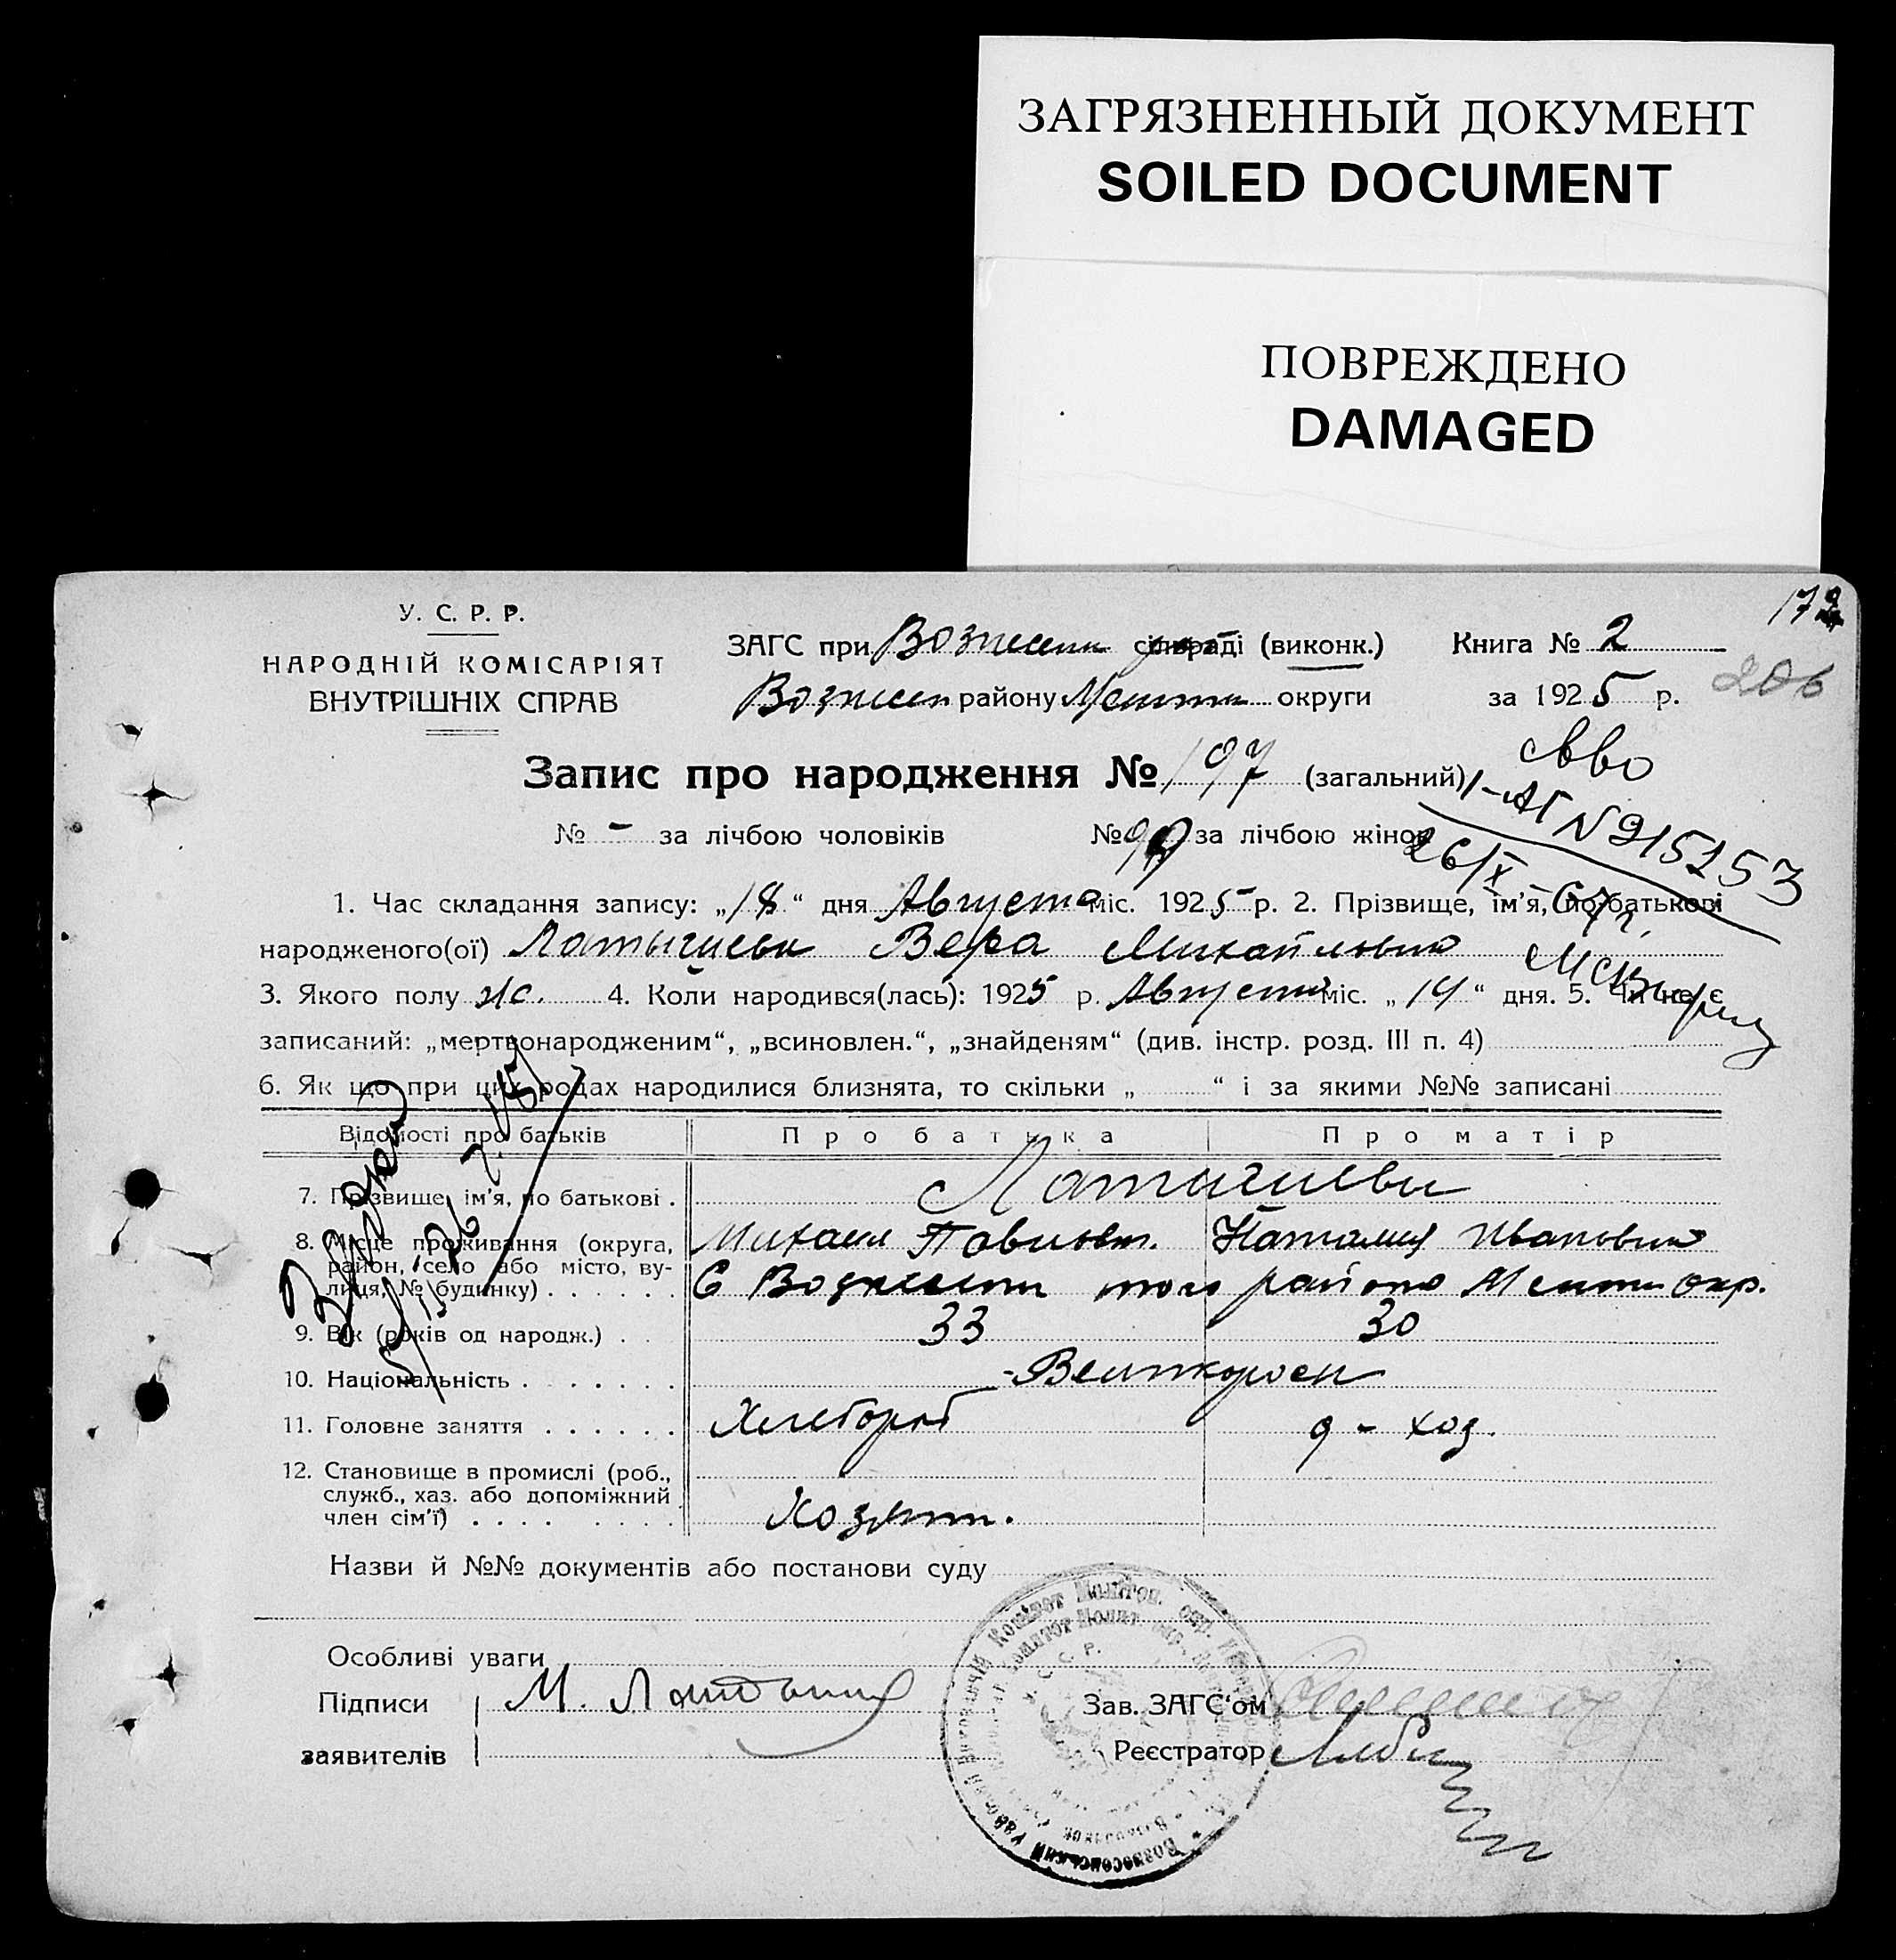 ЗАГРЯЗНЕННЫЙ ДОКУМЕНТ
SOILED DOCUMENT
ПОВРЕЖДЕНО
DAMAGED
У. С. Р. Р.
НАРОДНІЙ КОМІСАРІЯТ
ВНУТРІШНІХ СПРАВ
ЗАГС при Вознесен сільраді (виконк.) Книга № 2
Вознесен району Мелит округи за 1925 р. 206
Запис про народження № 197 (загальний)
№ - за лічбою чоловіків № за лічбою жінок
1-АП № 215253
26/X-67г.
1. Час складання запису: „18“ дня Августа міс. 1925 р. 2. Прізвище, ім'я, по батькові
народженого(ої) Латышева Вера Михайловна
3. Якого полу ж. 4. Коли народився(лась): 1925 р. Августа міс. „14“ дня. 5. Чи не є
записаний: „мертвонародженим“, „всиновлен.“, „знайденям“ (див. інстр. розд. III п. 4)
6. Як що при цих родах народилися близнята, то скільки „ “ і за якими №№ записані
Відомості про батьків Про батька Про матір
7. Прізвище, ім'я, по батькові . Латышевы
8. Місце проживання (округа, Михаил Павлов. Наталия Ивановна
район, село або місто, ву-
лиця, № будинку) . . . . . . С Вознесен того района Мелит окр.
9. Вік (років од народж.) . . 33 30
10. Національність . . . . . . . Великорос
11. Головне заняття . . . . . . Хлебороб д-хоз.
12. Становище в промислі (роб.,
служб., хаз. або допоміжний
член сім'ї) . . . . . . . . Хозяин.
Назви й №№ документів або постанови суду
Особливі уваги
Підписи М. Зав. ЗАГС'ом
заявителів Реєстратор